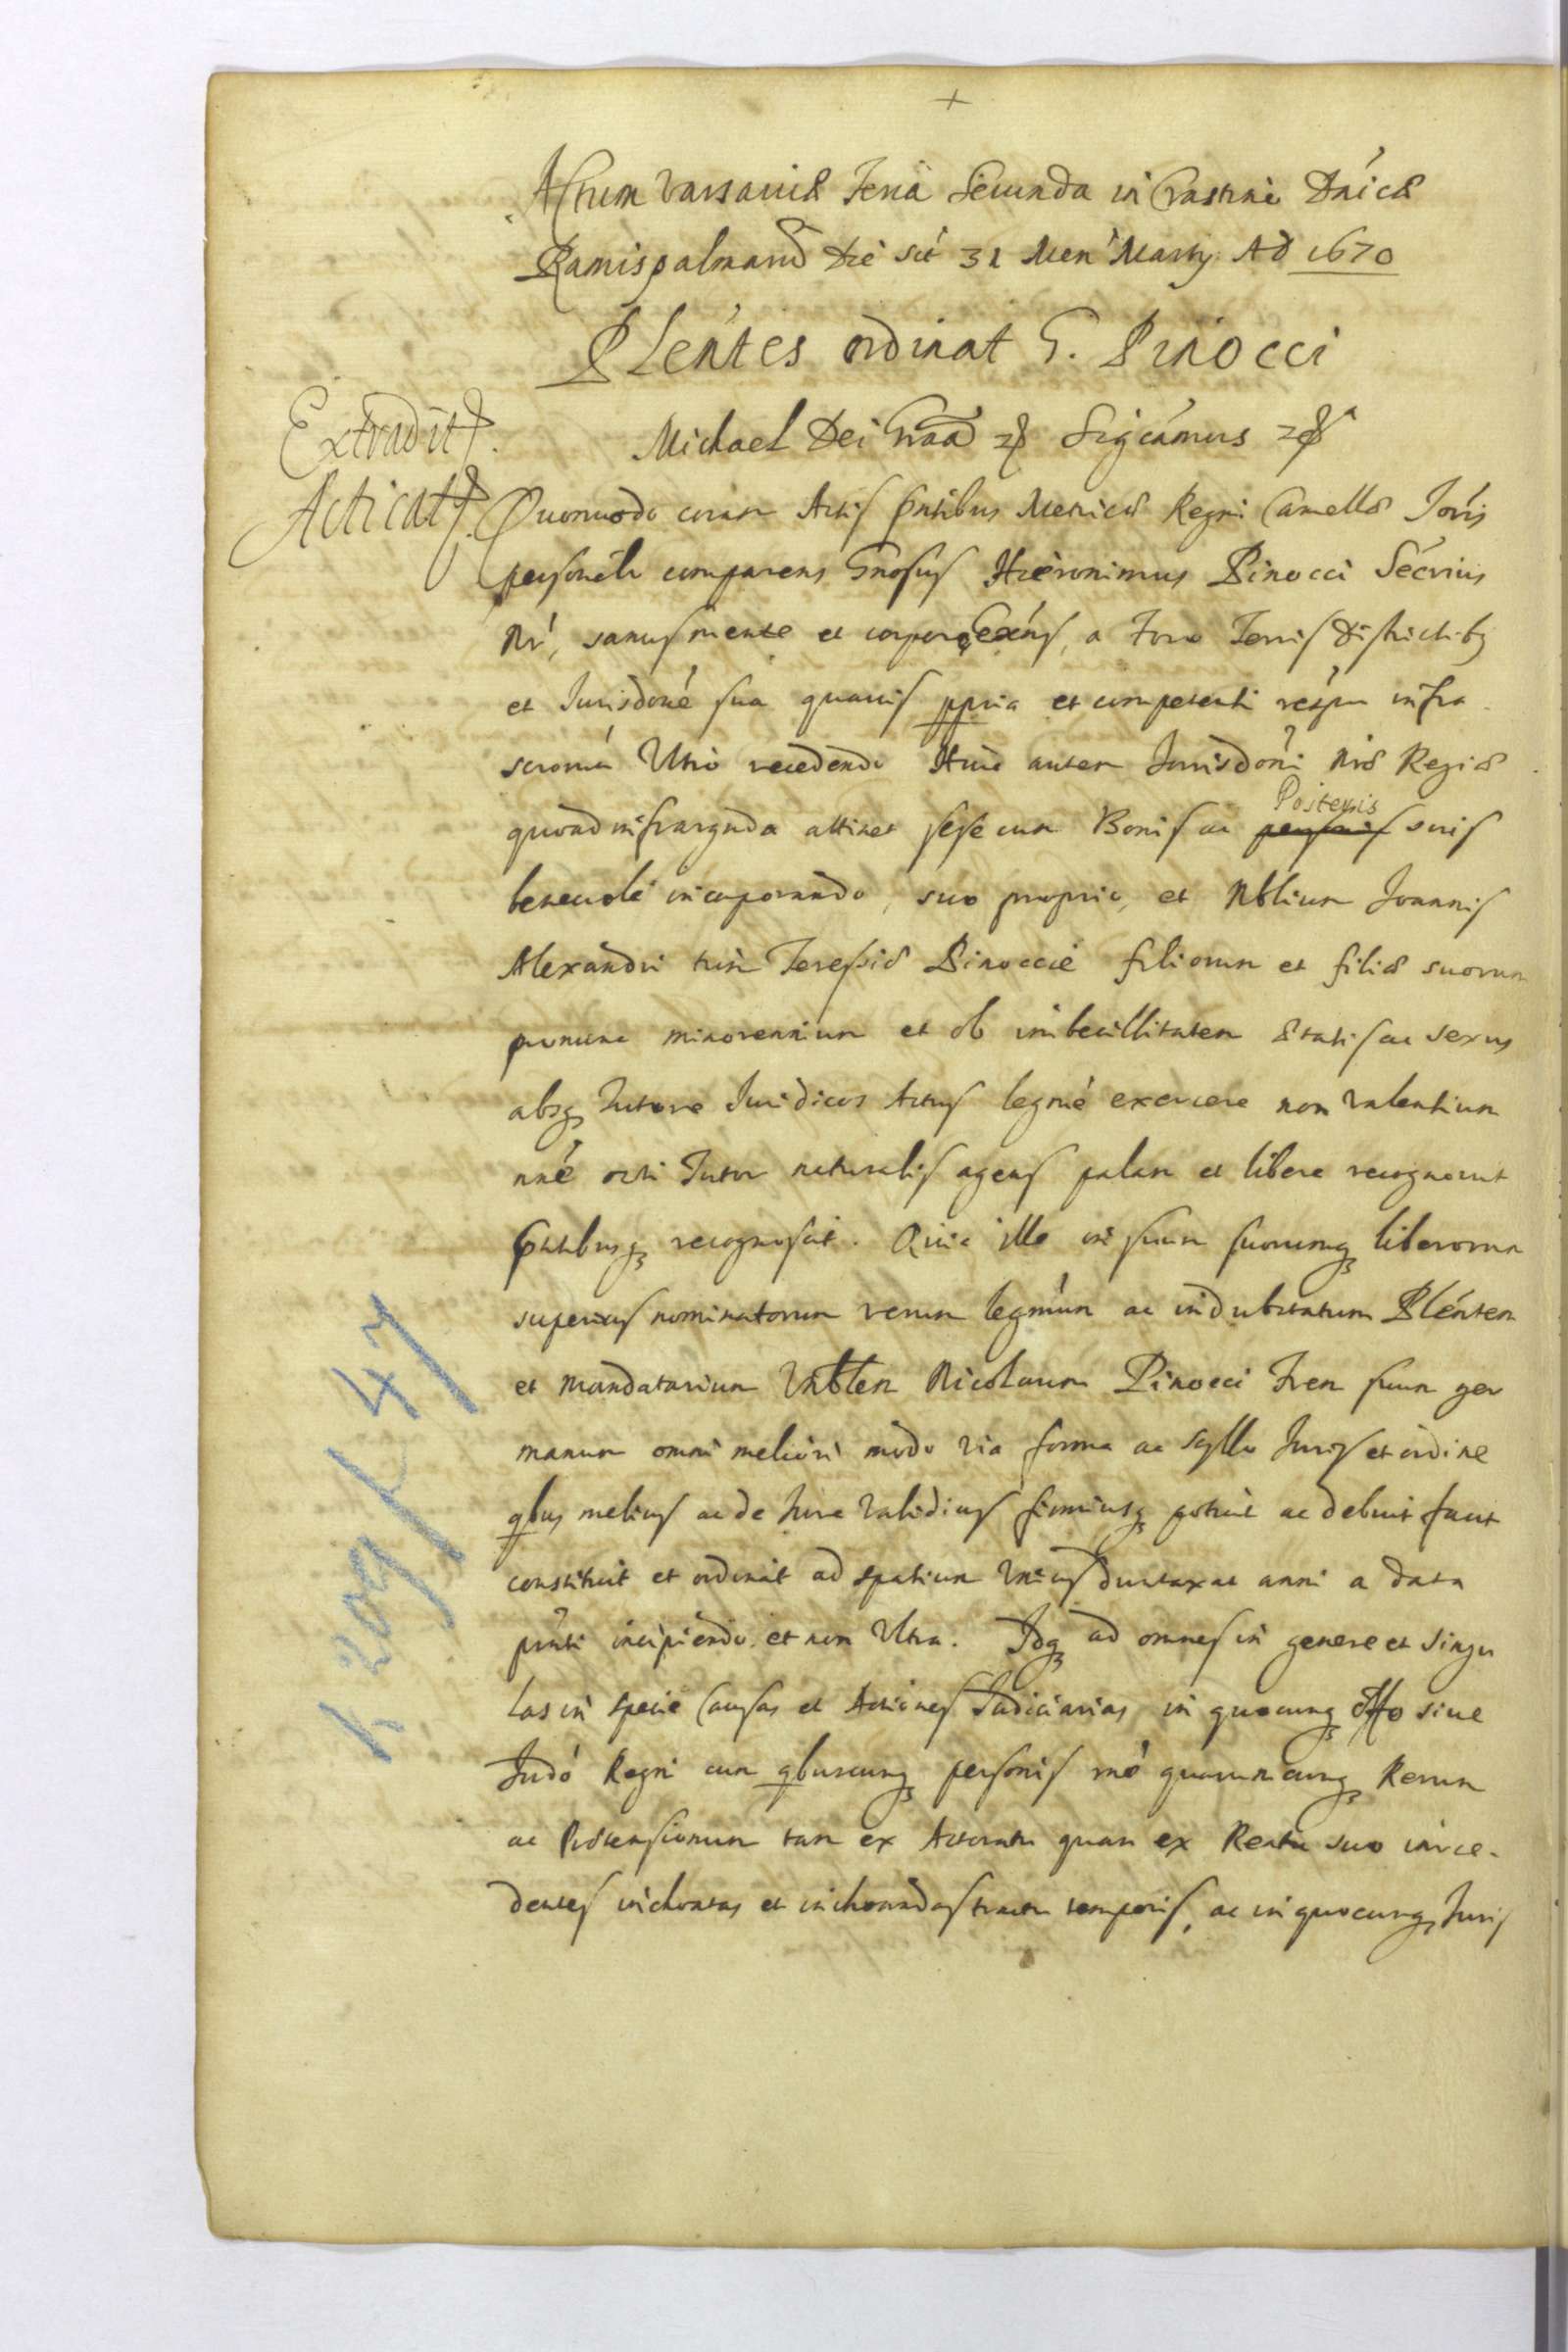 +
Actum Varsaviæ Feria Secunda in Crastino Dnicæ
Ramispalmarũ Die sct 31 Men Martij Ad 1670
Plentes ordinat G. Pinocci
Extradit.
Michael Dei Graã &c Sigcámus &c
Acticat.
Quomodo coram Actis pntibus Metricæ Regni Cancellæ Joris
personalr comparens Gnosus Hieronimus Pinocci Sécrius
Nr, sanus mente et corpore exns, a Foro Terris districtibq
et Jurisdoné sua quavis ppria et competenti respu infra
Ultro recedendo Huic autem Jurisdoni Nræ Regiæ
quoad infrargnda attinet sese cum Bonis ac Posteris suis
benevole incorporando, suo proprio, et Nblium Joannis
Alexandri tum Teressiæ Pinoccié filiorum et filiæ suorum
pronunc minorennium et ob imbecillitatem ætatis ac sexus
absq Tutore Juridicos Actus legmé exercere non valentium
nné Tutor naturalis agens palam et libere recognovit
pntibusq recognoscit. Quia ille in suum suorumq liberorum
superius nominatorum verum legmum ac indubitatum Pléntem
et mandatarium Nicolaum Pinocci Frem suum ger
manum omni meliori modo via forma ac styllo Juris et ordine
qbus melius ac de Jure validius firmiusq potuit ac debuit facit
constituit et ordinat ad spatium Unius duntaxat anni a data
pnti incipiendo et non Ultra. Idq ad omnes in genere et singu
las in specie Causas et Actiones Judiciarias in quocunq Offo sive
Judó Regni cum qbuscunq personis rnó quarumcunq Rerum
ac Prætensionum tam ex Actoratu quam ex Reatu suo
dentes inchoatas et inchoandas tractu temporis, ac in quocunq Juris